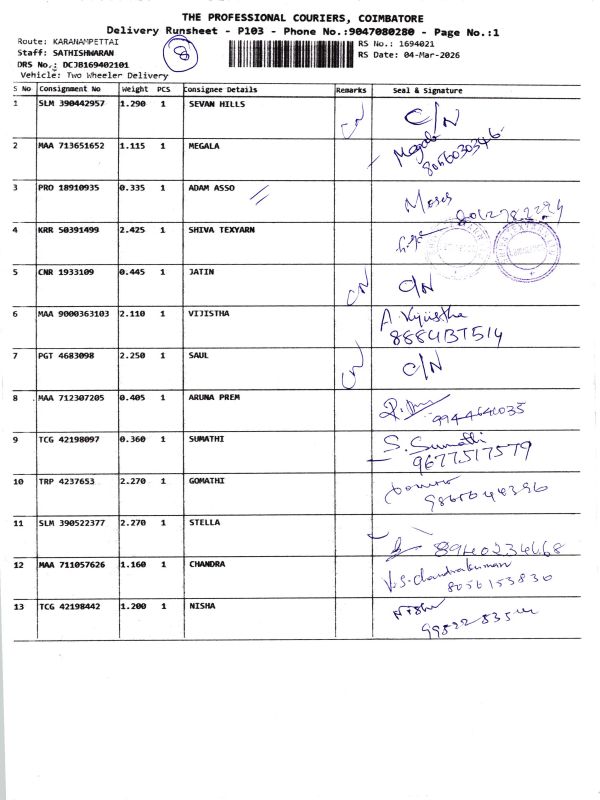 THE PROFESSIONAL COURIERS, COIMBATORE
Delivery Runsheet - P103 - Phone No.:9047080280 - Page No.:1
Route: KARANAMPETTAI
Staff: SATHISHWARAN
DRS No.: DCJB169402101
Vehicle: Two Wheeler Delivery
8
RS No.: 1694021
RS Date: 04-Mar-2026
S No Consignment No Weight PCS Consignee Details Remarks Seal & Signature
1 SLM 390442957 1.290 1 SEVAN HILLS CN C/N
2 MAA 713651652 1.115 1 MEGALA Megala
8056030346
3 PRO 18910935 0.335 1 ADAM ASSO Moses
4 KRR 50391499 2.425 1 SHIVA TEXYARN
5 CNR 1933109 0.445 1 JATIN CN C/N
6 MAA 9000363103 2.110 1 VIJISTHA A. Vijistha
7 PGT 4683098 2.250 1 SAUL CN C/N
8 MAA 712307205 0.405 1 ARUNA PREM
9944641035
9 TCG 42198097 0.360 1 SUMATHI S. Sumathi
9677517579
10 TRP 4237653 2.270 1 GOMATHI
11 SLM 390522377 2.270 1 STELLA
8940234668
12 MAA 711057626 1.160 1 CHANDRA V.S. Chandrakumar
8056153830
13 TCG 42198442 1.200 1 NISHA Nisha